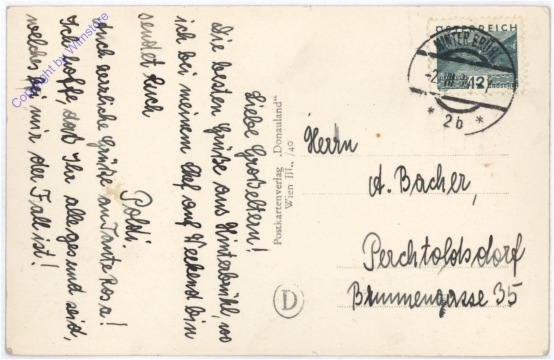 Liebe Großeltern!
Die besten Grüße aus Hinterbrühl, wo
ich bei meinem Chef auf Weekend bin
sendet Euch
Poldi.
Auch herzliche Grüße an Tante Rosa!
Ich hoffe, daß Ihr alle gesund seid,
welches bei mir der Fall ist!
Postkartenverlag „Donauland“
Wien III., /40
D
ÖSTERREICH
12
HINTERBRÜHL
* 2b *
Herrn
A. Bacher,
Perchtoldsdorf
Brunnengasse 35
Copyright by Wilnstore